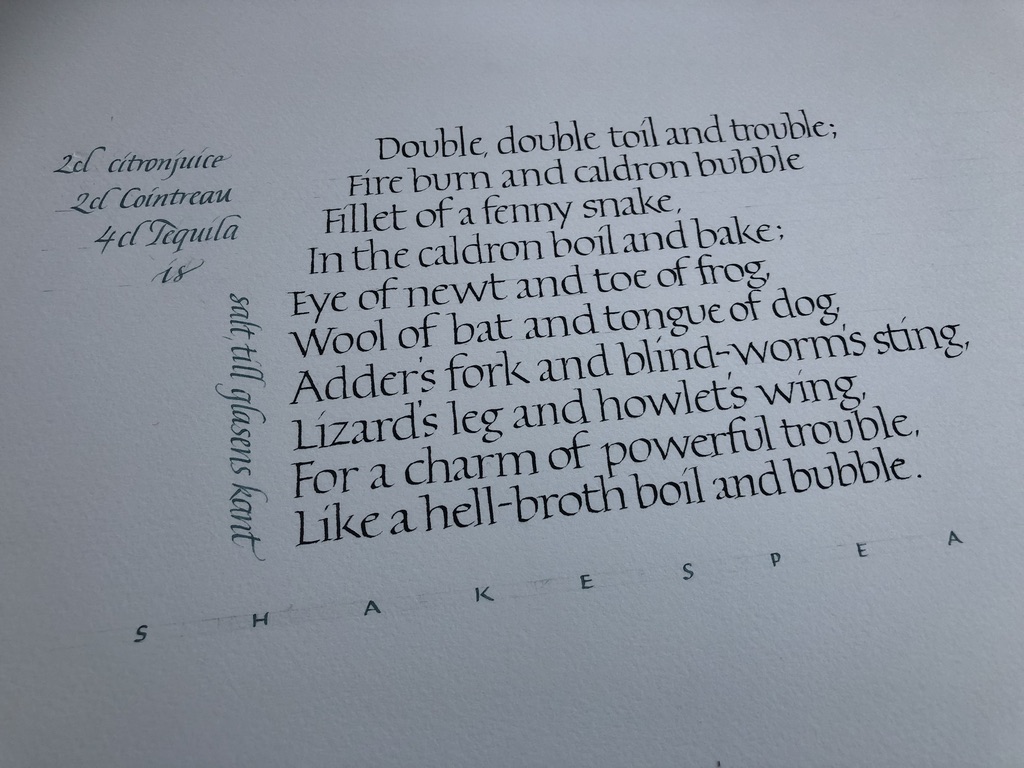 2cl citronjuice
2cl Cointreau
4cl Tequila
is
salt, till glasens kant
Double, double toil and trouble;
Fire burn and caldron bubble
Fillet of a fenny snake,
In the caldron boil and bake;
Eye of newt and toe of frog,
Wool of bat and tongue of dog,
Adder's fork and blind-worm's sting,
Lizard's leg and howlet's wing,
For a charm of powerful trouble,
Like a hell-broth boil and bubble.
S H A K E S P E A